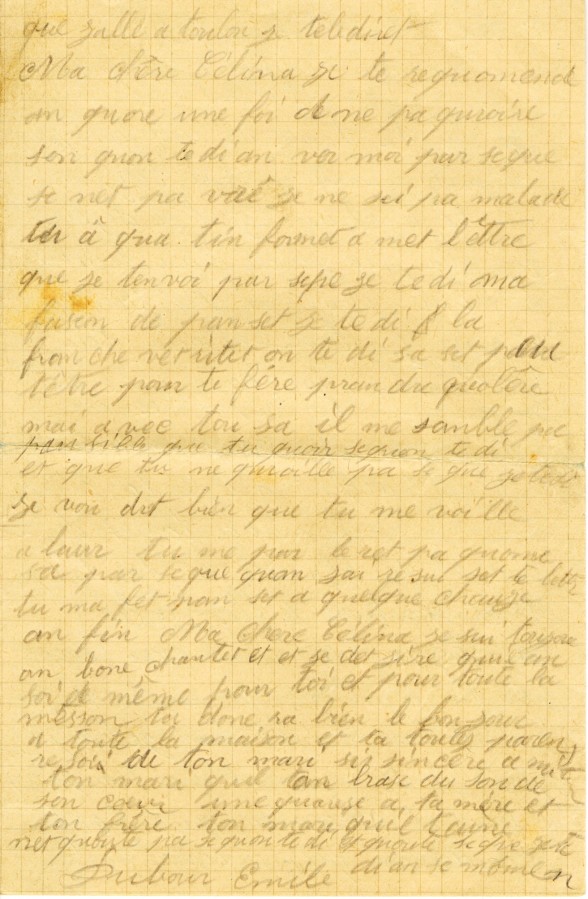 que zallé a toulon ze telediret
Ma chère Célina ze te requomend
an quore une foi de ne pa quroire
son quon te di an voi moi par seque
se net pa vrè ze ne sui pa malade
tu a qua tin formet a met lêttre
que ze tenvoi par seqe ze te di ma
fason de panset ze te di la
franche veritet on te di sa set peut
têtre pour te fére prandre quolère
mai avec tou sa il me sanble pa
posible que tu quoir sequon te di
et que tu ne quroille pa se que ze tedi
ze voudrt bien que tu me voille
a laur tu me par leret pa quome
sa par seque quan zai resu set te lettre
tu ma fet pan set a quelque chauze
an fin Ma Chere Célina ze sui toujour
an bone chantet et ze det zire quil an
soi de même pour toi et pour toute la
messon tu done ra bien le bonzour
a toute la maison et ta toute paren
resoi de ton mari si sincère ami
ton mari quil tan brase du fon de
son cœur une quause a ta mère et
ton frère ton mari quil taime
net quoute pa sequon te di et quoute seque ze te
di an se moman
Dubour Emile